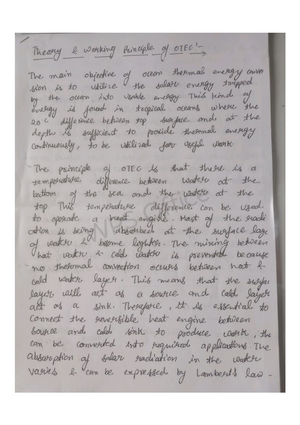 Theory & Working Principle of OTEC :-
The main objective of ocean thermal energy conver
sion is to utilize the solar energy trapped
by the ocean into usable energy. This kind of
energy is found in tropical oceans where the
20°C difference between top surface and at the
depth is sufficient to provide thermal energy
continuously, to be utilised for useful work.
The principle of OTEC is that there is a
temperature difference between water at the
bottom of the sea and the water at the
top. This temperature difference can be used
to operate a heat engine. Most of the radi
ation is being absorbed at the surface layer
of water & become lighter. The mixing between
hot water & cold water is prevented because
no thermal convection occurs between hot &
cold water layer. This means that the surface
layer will act as a source and cold layer
act as a sink. Therefore, it is essential to
connect the reversible heat engine between
source and cold sink to produce work, this
can be converted into required applications. The
absorption of solar radiation in the water
varies & can be expressed by Lambert's law -